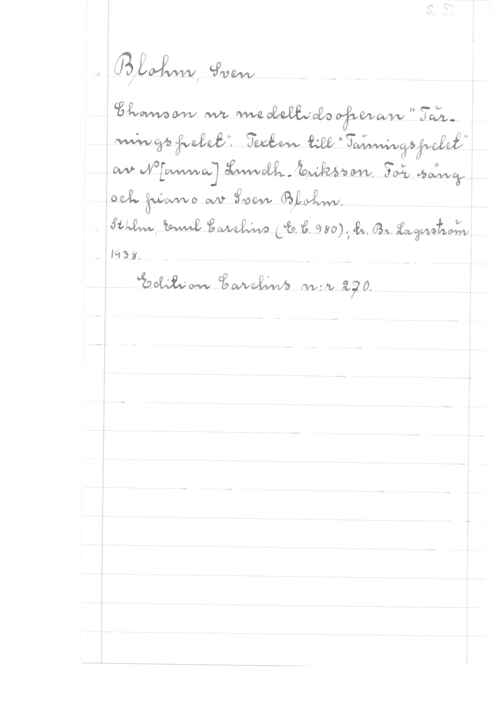 S. 5.
Blohm, Sven
Chanson ur medeltidsoperan "Tär-
ningspelet". Texten till "Tärningspelet"
av N[anna] Lundh-Eriksson. För sång
och piano av Sven Blohm.
Sthlm, Emil Carelius (E. C. 980); tr. Br. Lagerström
1938.
Edition Carelius n:r 270.